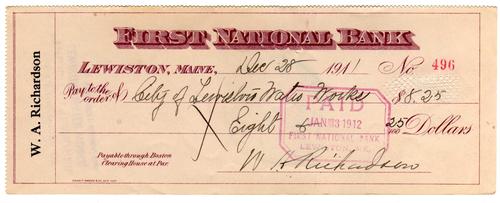 FIRST NATIONAL BANK
LEWISTON, MAINE, Dec 28 1911 No. 496
Pay to the order of City of Lewiston Water Works $8.25
Eight & 25/100 Dollars
PAID
JAN 3 1912
FIRST NATIONAL BANK
LEWISTON, ME.
Payable through Boston
Clearing House at Par.
W. A. Richardson
W A Richardson